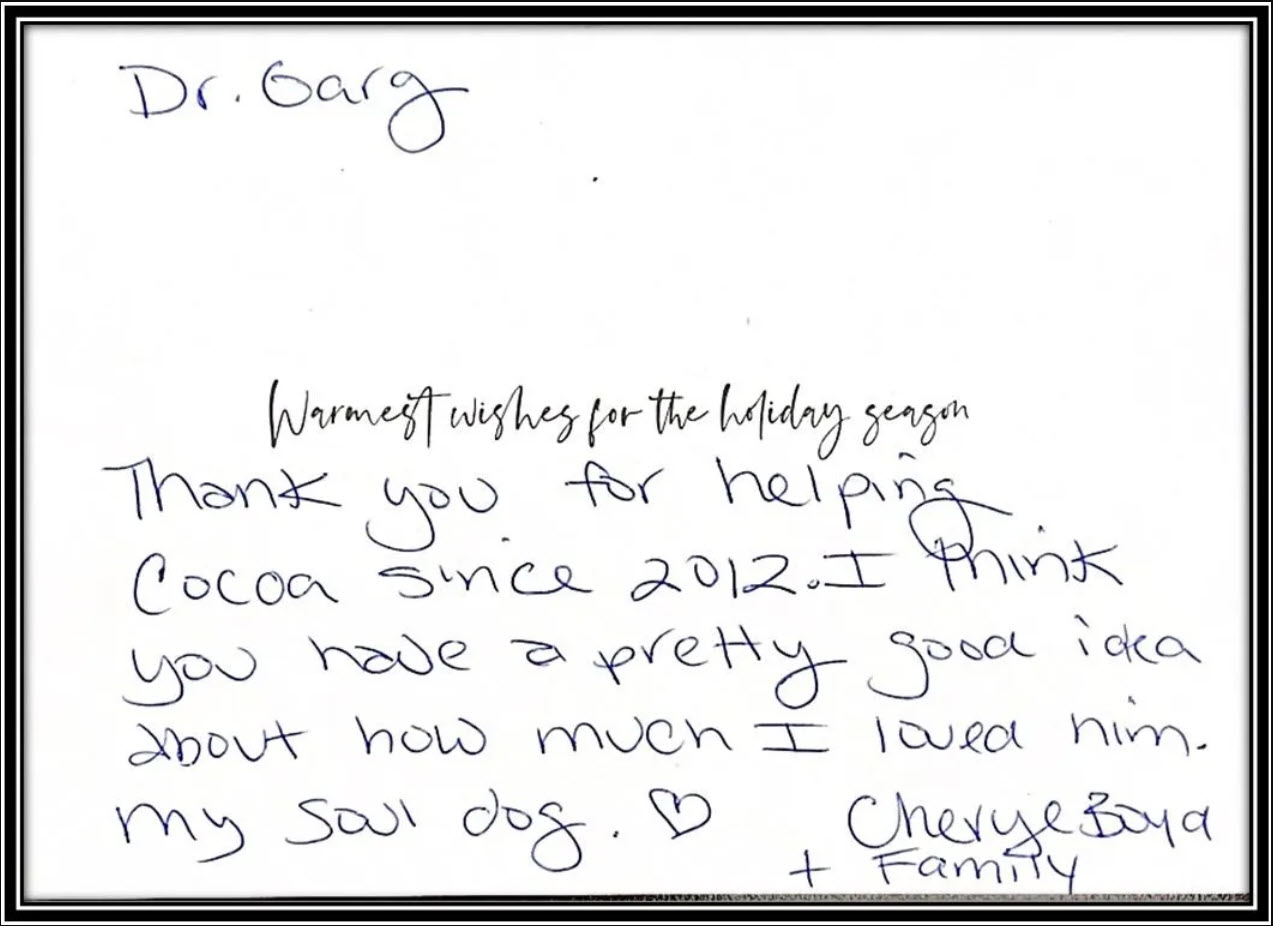 Dr. Garg
Warmest wishes for the holiday season
Thank you for helping
Cocoa since 2012. I think
you have a pretty good idea
about how much I loved him.
my soul dog. ♡ Cherye Boyd
+ Family